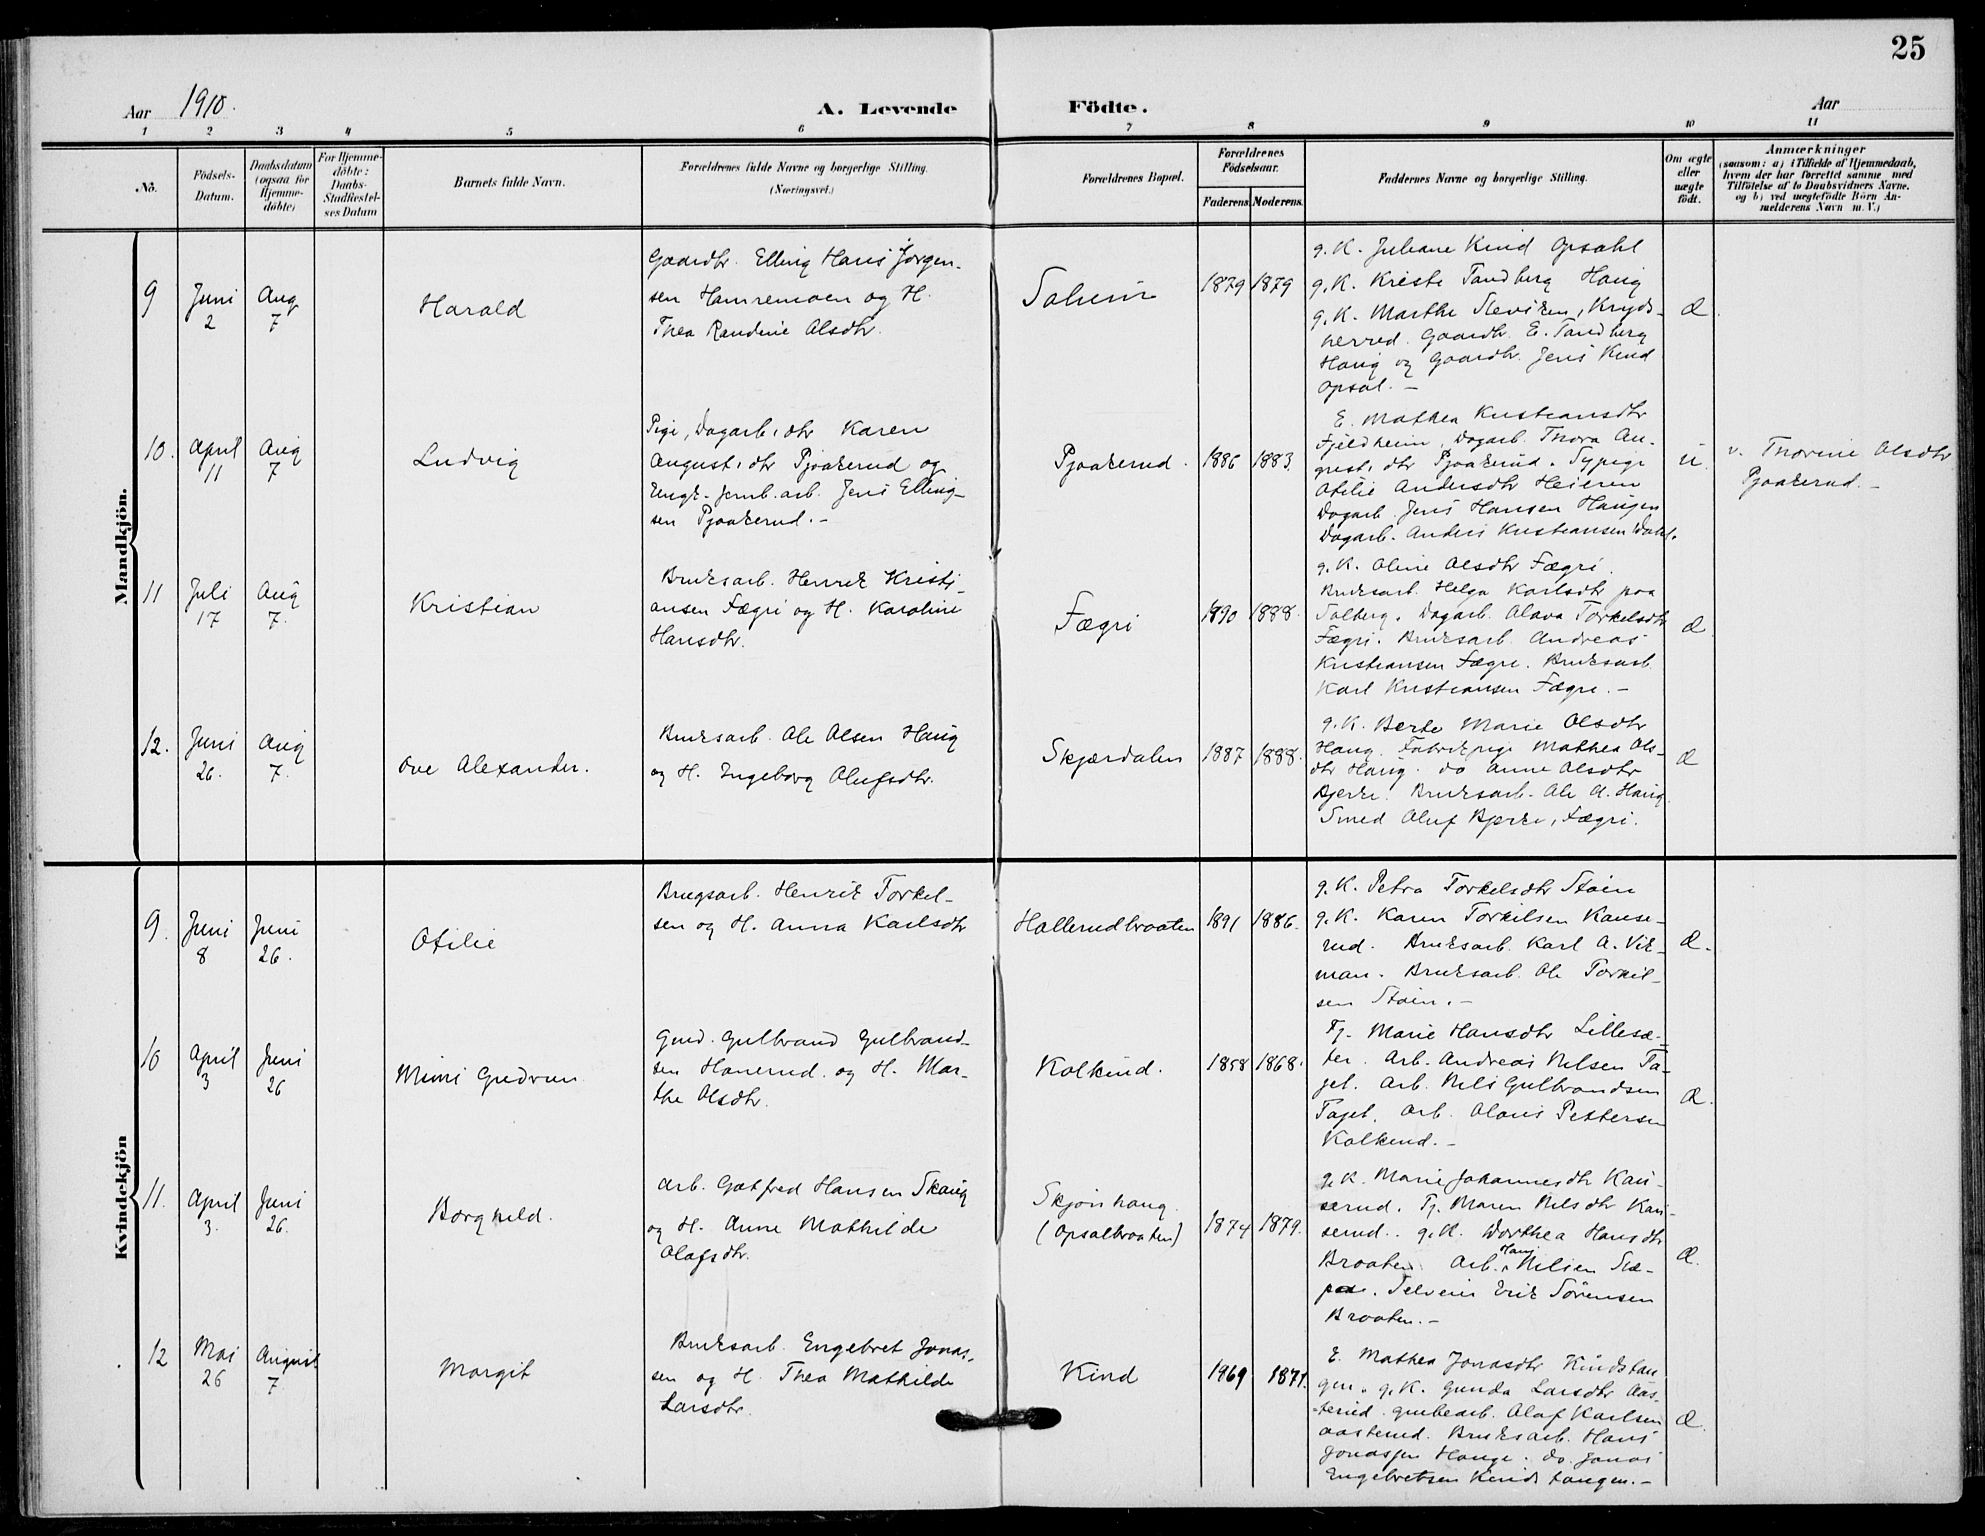 25
Aar 1910.
A. Levende Födte.
Aar
1 2 3 4 5 6 7 8 9 10 11
No.
Födsels-
Datum.
Daabsdatum
(ogsaa for
Hjemme-
döbte)
For Hjemme-
döbte:
Daabs-
Stadfæstel-
ses Datum
Barnets fulde Navn.
Forældrenes fulde Navne og borgerlige Stilling.
(Næringsvei.)
Forældrenes Bopæl.
Forældrenes
Födselsaar.
Faderens. Moderens.
Faddernes Navne og borgerlige Stilling.
Om ægte
eller
uægte
födt.
Anmærkninger
(saasom: a) i Tilfælde af Hjemmedaab,
hvem der har forrettet samme med
Tilföielse af to Daabsvidners Navne.
og b) ved uægtefödte Börn An-
melderens Navn m. V.)
Mandkjön.
9
Juni
2
Aug
7
Harald
Gaardbr. Elling Hans Jørgen-
sen Hamremoen og H.
Thea Randine Olsdtr.
Solheim
1879 1879
g. K. Juliane Kind Opsahl
g. K. Kriste Tandberg Haug
g. K. Marthe Sleviken, Kryds-
herred. Gaardbr. E. Tandberg
Haug og Gaardbr. Jens Kind
Opsal. –
Æ.
10.
April
11
Aug
7
Ludvig
Pige, Dagarb. dtr Karen
August. dtr Pjaakerud og
Ungk. Jernb. arb. Jens Elling-
sen Pjaakerud. –
Pjaakerud.
1886 1883.
E. Mathea Kristiansdtr
Fjeldheim, Dagarb. Thora Au-
gust. dtr Pjaakerud. Sypige
Otilie Andersdtr Heieren
Dagarb. Jens Hansen Haugen
Dagarb. Anders Kristiansen Dahl.
u.
v. Thorine Olsdtr
Pjaakerud. –
11
Juli
17
Aug
7.
Kristian
Bruksarb. Henrik Kristi-
ansen Fægri og H. Karoline
Hansdtr.
Fægri
1890 1888.
g. K. Oline Olsdtr Fægri.
Bruksarb. Helga Karlsdtr paa
Solberg. Dagarb. Olava Torkelsdtr
Fægri. Bruksarb. Andreas
Kristiansen Fægri. Bruksarb.
Karl Kristiansen Fægri. –
Æ.
12.
Juni
26.
Aug
7.
Ove Alexander.
Bruksarb. Ole Olsen Haug
og H. Ingeborg Olufsdtr.
Skjærdalen
1887 1888.
g. K. Berte Marie Olsdtr
Haug. Fabrikpige Mathea Ols-
dtr Haug. do Anne Olsdtr
Bjerke. Bruksarb. Ole A. Haug.
Smed Oluf Bjerke, Fægri.
Æ
Kvindekjön
9.
Juni
8
Juni
26.
Otilie
Brugsarb. Henrik Torkel-
sen og H. Anna Karlsdtr
Hallerudbraaten
1891 1886.
g. K. Petra Torkelsdtr Støin
g. K. Karen Torkilsen Kause-
rud. Bruksarb. Karl A. Vik-
man. Bruksarb. Ole Torkil-
sen Støin. –
Æ.
10
April
3
Juni
26
Mimi Gudrun
Gmd. Gulbrand Gulbrand-
sen Hanerud. og H. Mar-
the Olsdtr.
Kolkind.
1858 1868.
Tj. Marie Hansdtr Lillesæ-
ter. Arb. Andreas Nilsen Ta-
jet. Arb. Nils Gulbrandsen
Tajet. Arb. Olaus Pettersen
Kolkind. –
Æ.
11.
April
3.
Juni
26.
Borghild.
Arb. Gotfred Hansen Skaug
og H. Anne Mathilde
Olafsdtr.
Skjønhaug.
(Opsalbraaten)
1874 1879.
g. K. Marie Johannesdtr Kau-
serud. Tj. Maren Nilsdtr Kau-
serud.. g. K. Dorthea Hansdtr
Braaten. Arb. Hans Nilsen
Selveier Erik Sørensen
Braaten. –
Æ.
12
Mai
26
August
7
Margit
Bruksarb. Engebret Jonas-
sen og H. Thea Mathilde
Larsdtr.
Kind
1969 1871.
E. Mathea Jonasdtr Kindstan-
gen. g. K. Gunda Larsdtr Aas-
terud. Grubearb. Olaf Karlsen
Aasterud. Bruksarb. Hans
Jonassen Hauge. do. Jonas
Engebretsen Kindstangen. –
Æ.